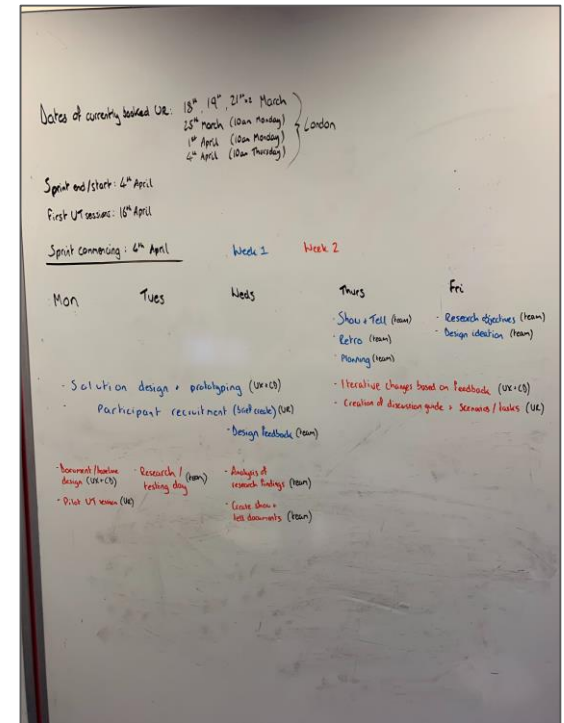 Dates of currently booked UR: 18th, 19th, 21st March
25th March (10am Monday)
1st April (10am Monday)
4th April (10am Thursday)
London
Sprint end/start: 4th April
First UT sessions: 16th April
Sprint commencing: 4th April
Week 1
Week 2
Mon
Tues
Weds
Thurs
Fri
- Show + Tell (team)
- Retro (team)
- Planning (team)
- Research objectives (team)
- Design ideation (team)
- Solution design + prototyping (UX+CD)
- Participant recruitment (brief create) (UR)
- Design feedback (team)
- Iterative changes based on feedback (UX+CD)
- Creation of discussion guide + scenarios / tasks (UR)
- Document/baseline
design (UX+CD)
- Pilot UT session (UR)
- Research /
testing day
(team)
- Analysis of
research findings (team)
- Create show +
tell documents (team)